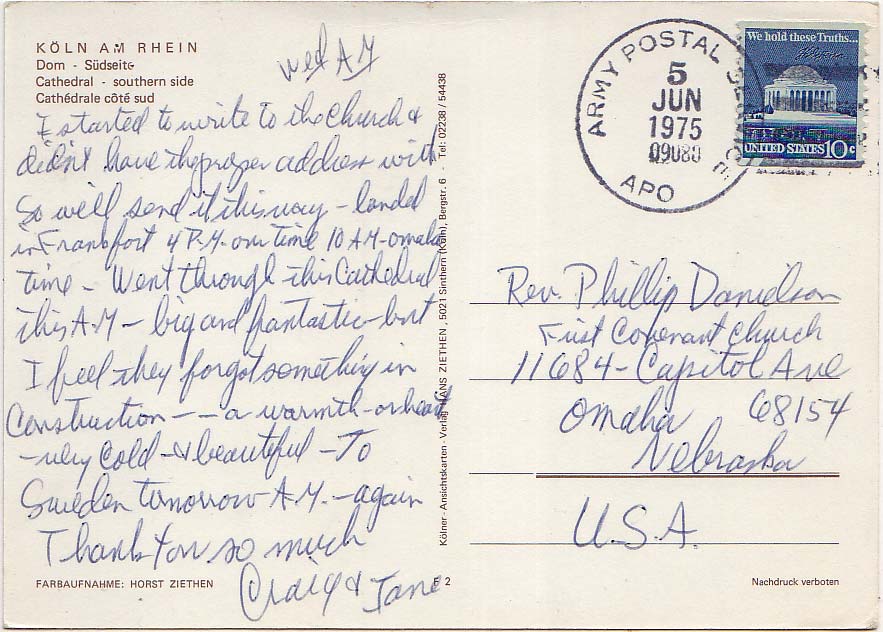 KÖLN AM RHEIN
Dom - Südseite
Cathedral - southern side
Cathédrale côté sud
Wed AM
I started to write to the Church &
didn't have the proper address with
So we'll send it this way - landed
in Frankfort 4 P.M. our time 10 AM - omaha
time - Went through this Cathedral
this A.M - big and fantastic - but
I feel they forgot something in
Construction -- a warmth - or heart
- very cold - & beautiful - To
Sweden tomorrow A.M. - again
Thank You so much
Craig & Jane
FARBAUFNAHME: HORST ZIETHEN
E 2
Kölner - Ansichtskarten - Verlag HANS ZIETHEN, 5021 Sinthern (Köln), Bergstr. 6 - Tel: 02238 / 54438
ARMY POSTAL SERVICE
5
JUN
1975
APO
We hold these Truths...
UNITED STATES 10c
Rev. Phillip Danielson
First Covenant Church
11684 - Capitol Ave
Omaha 68154
Nebraska
U.S.A.
Nachdruck verboten